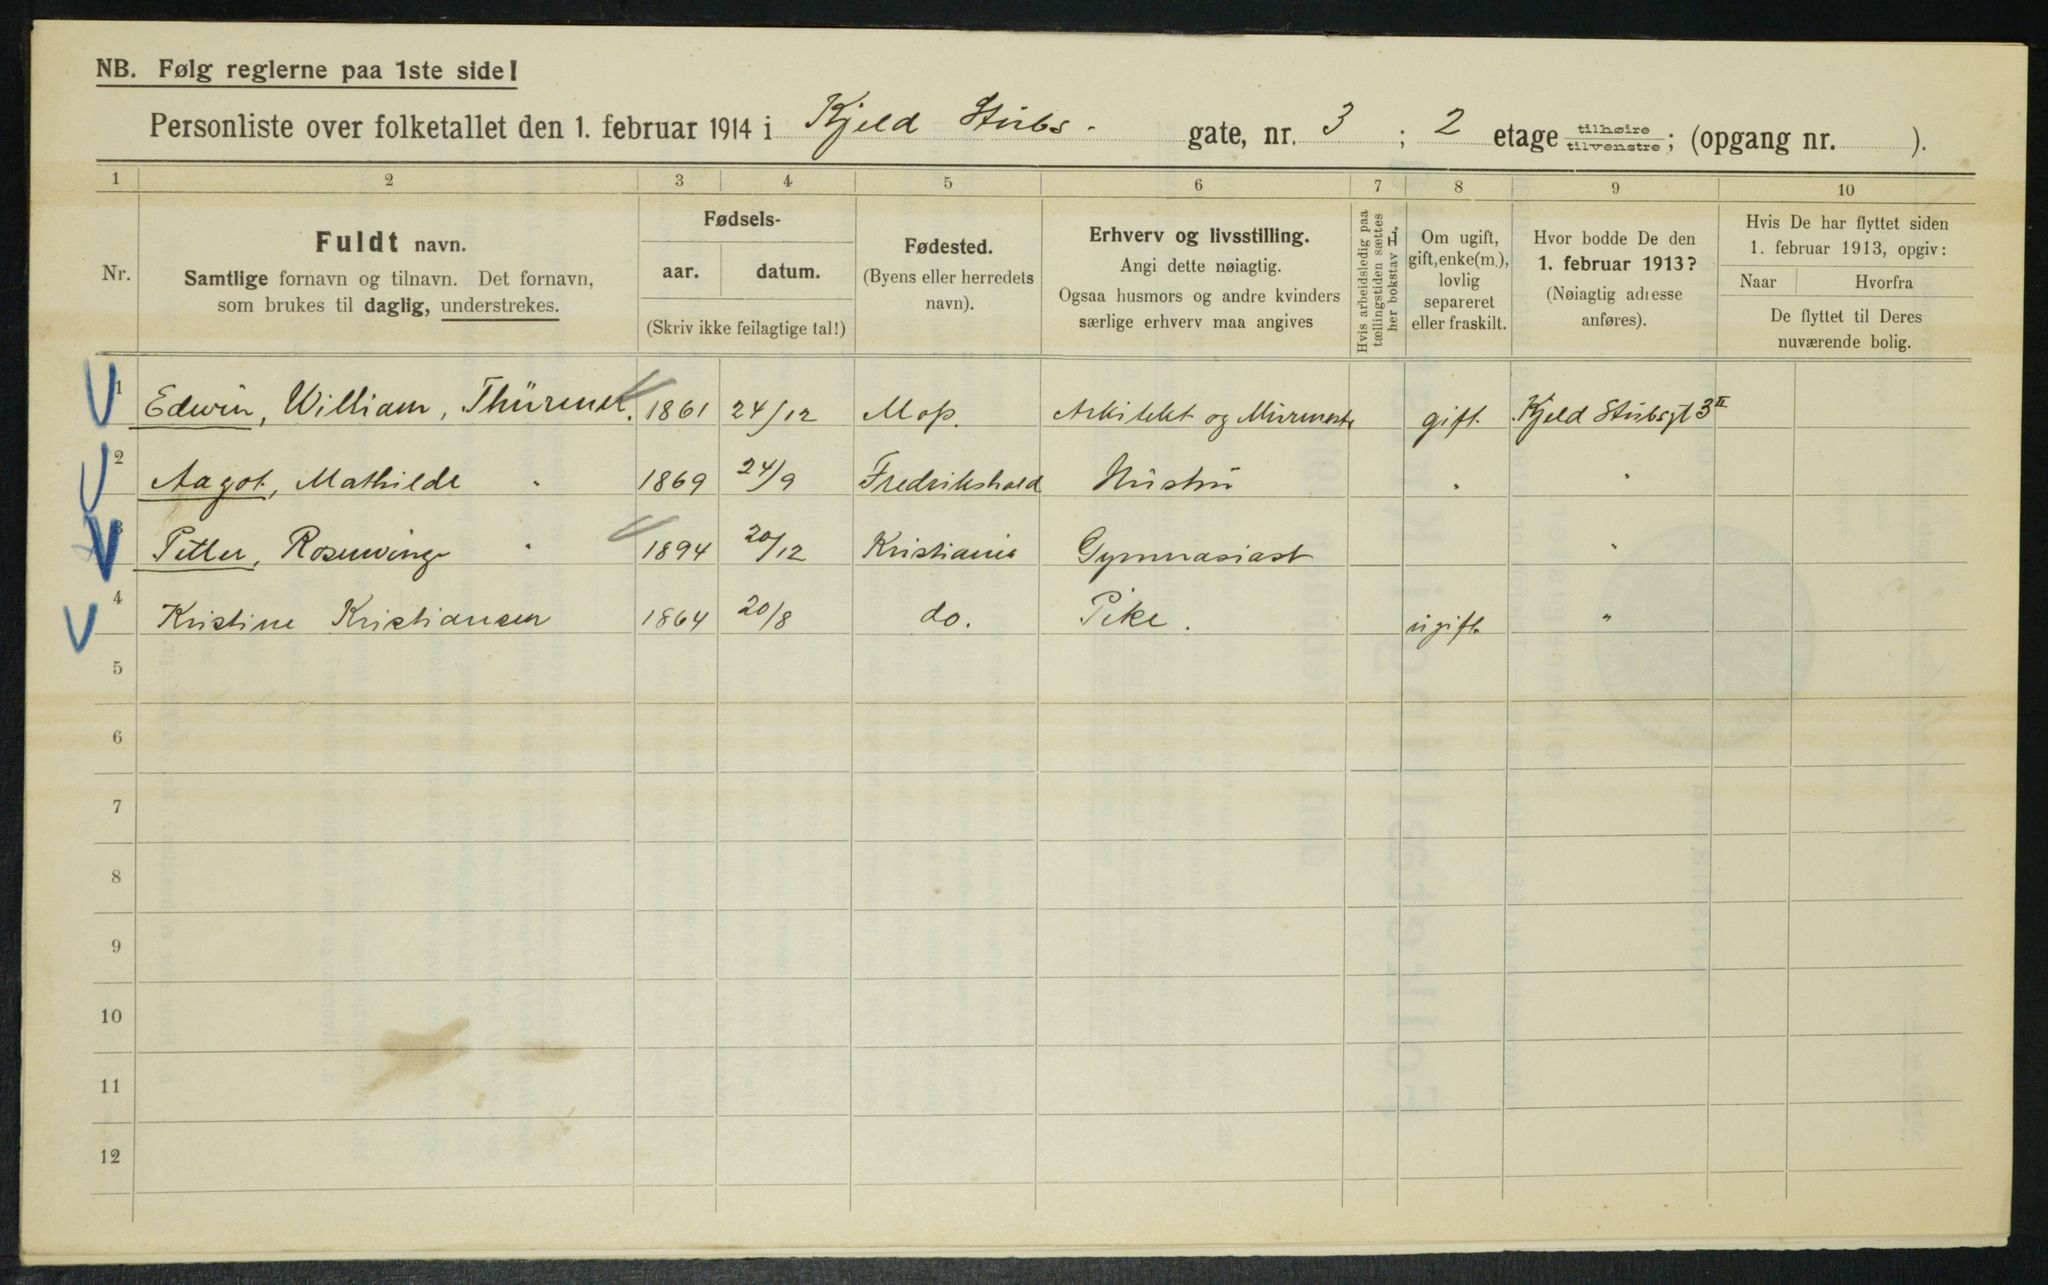 NB. Følg reglerne paa 1ste side!
Personliste over folketallet den 1. februar 1914 i Kjeld Stubs - gate, nr. 3 ; 2 etage tilhøire tilvenstre; (opgang nr. ).
1 2 3 4 5 6 7 8 9 10
Nr.
Fuldt navn.
Samtlige fornavn og tilnavn. Det fornavn,
som brukes til daglig, understrekes.
Fødsels-
aar. datum.
(Skriv ikke feilagtige tal!)
Fødested.
(Byens eller herredets
navn).
Erhverv og livsstilling.
Angi dette nøiagtig.
Ogsaa husmors og andre kvinders
særlige erhverv maa angives
Hvis arbeidsledig paa
tællingstiden sættes
her bokstav L.
Om ugift,
gift, enke(m.),
lovlig
separeret
eller fraskilt.
Hvor bodde De den
1. februar 1913?
(Nøiagtig adresse
anføres).
Hvis De har flyttet siden
1. februar 1913, opgiv:
Naar Hvorfra
De flyttet til Deres
nuværende bolig.
1 Edwin, William, Thürmer. 1861 24/12 Moss. Arkitekt og Murmestr gift. Kjeld Stubsgt 3 II
2 Aagot, Mathilde " 1869 24/9 Fredrikshald Hustru " "
3 Petter, Rosenvinge " 1894 20/12 Kristiania Gymnasiast "
4 Kristine Kristiansen 1864 20/8 do. Pike. ugift. "
5
6
7
8
9
10
11
12